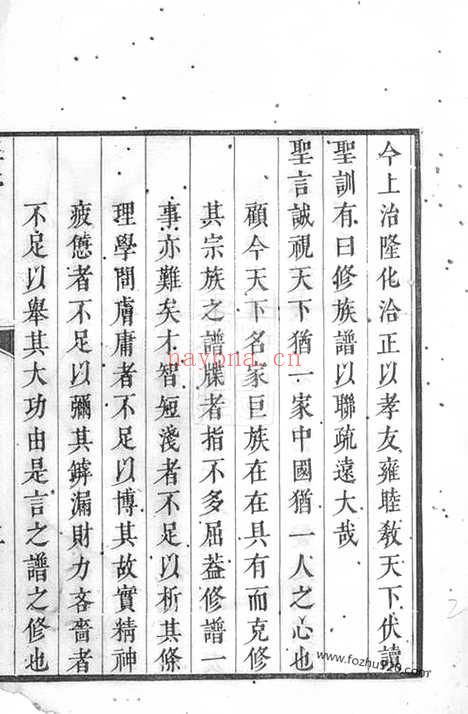 今上治隆化洽正以孝友雍睦敎天下伏讀
聖訓有曰修族譜以聯疏遠大哉
聖言誠視天下猶一家中國猶一人之心也
顧今天下名家巨族在在具有而克修
其宗族之譜牒者指不多屈葢修譜一
事亦難矣才智短淺者不足以析其條
理學問膚庸者不足以博其故實精神
疲憊者不足以彌其罅漏財力吝嗇者
不足以舉其大功由是言之譜之修也
nayona.cn
www.fozhu920.com